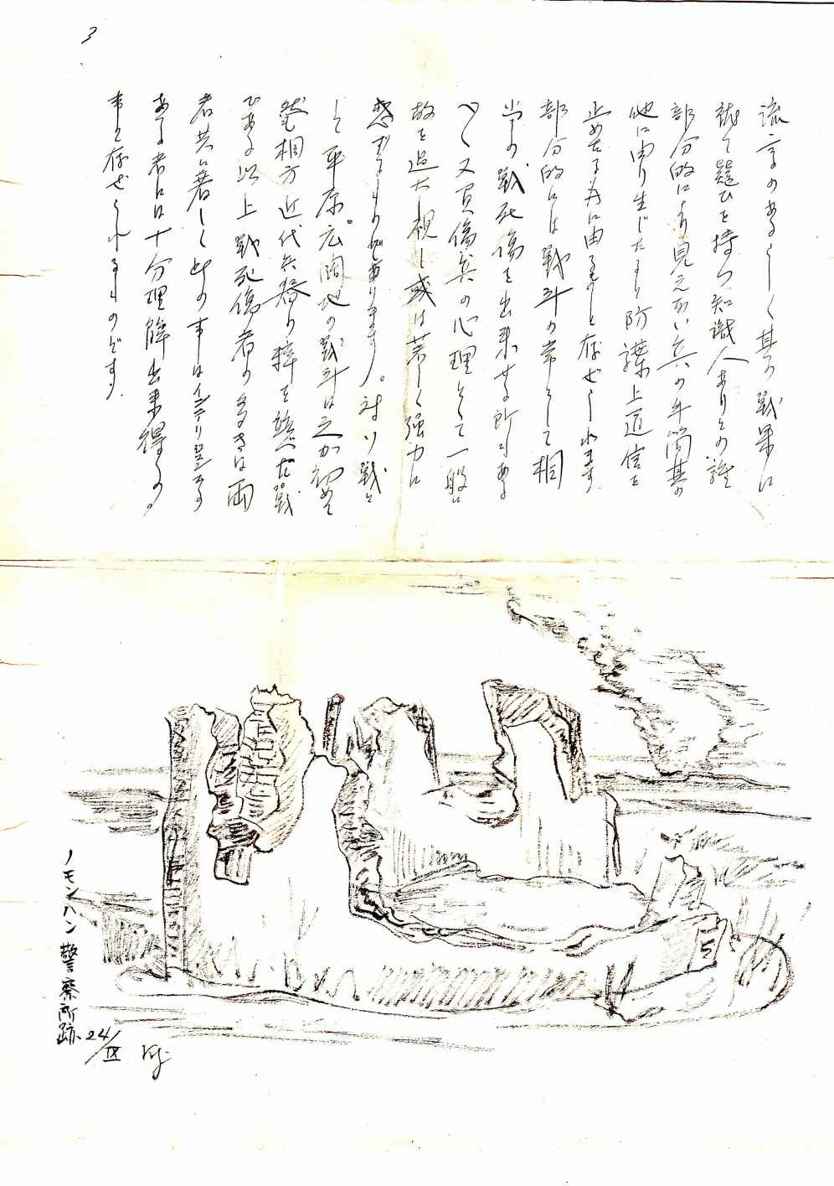 3
流言のあるらしく其の戦果に
就て疑ひを持つ知識人ありとの談
部分的により見えない兵の手簡其の
他に由り生じたより防諜上通信を
止めたる為に由るものと存ぜられます
部分的には戦斗の常として相
当の戦死傷を出来せる所もある
べく又負傷兵の心理として一般に
敵を過大視し或は著しく強力に
感ずるものであります。対ソ戦と
して平原。広濶地の戦斗は之が初めて
然も相方近代兵器の粋を競へた戦
である以上戦死傷者の多きは両
者共に著しく此の事はインテリゼンスの
ある者には十分理解出来得るの。
事と存ぜられるものです。
ノモンハン警察所跡. 24/IX